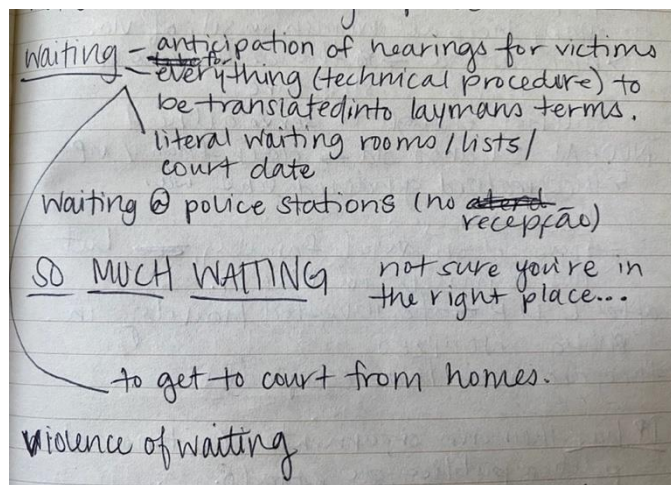 waiting - anticipation of hearings for victims
- for everything (technical procedure) to
be translated into laymans terms.
literal waiting rooms / lists /
court date
Waiting @ police stations (no
recepção)
SO MUCH WAITING not sure you're in
the right place...
to get to court from homes.
violence of waiting